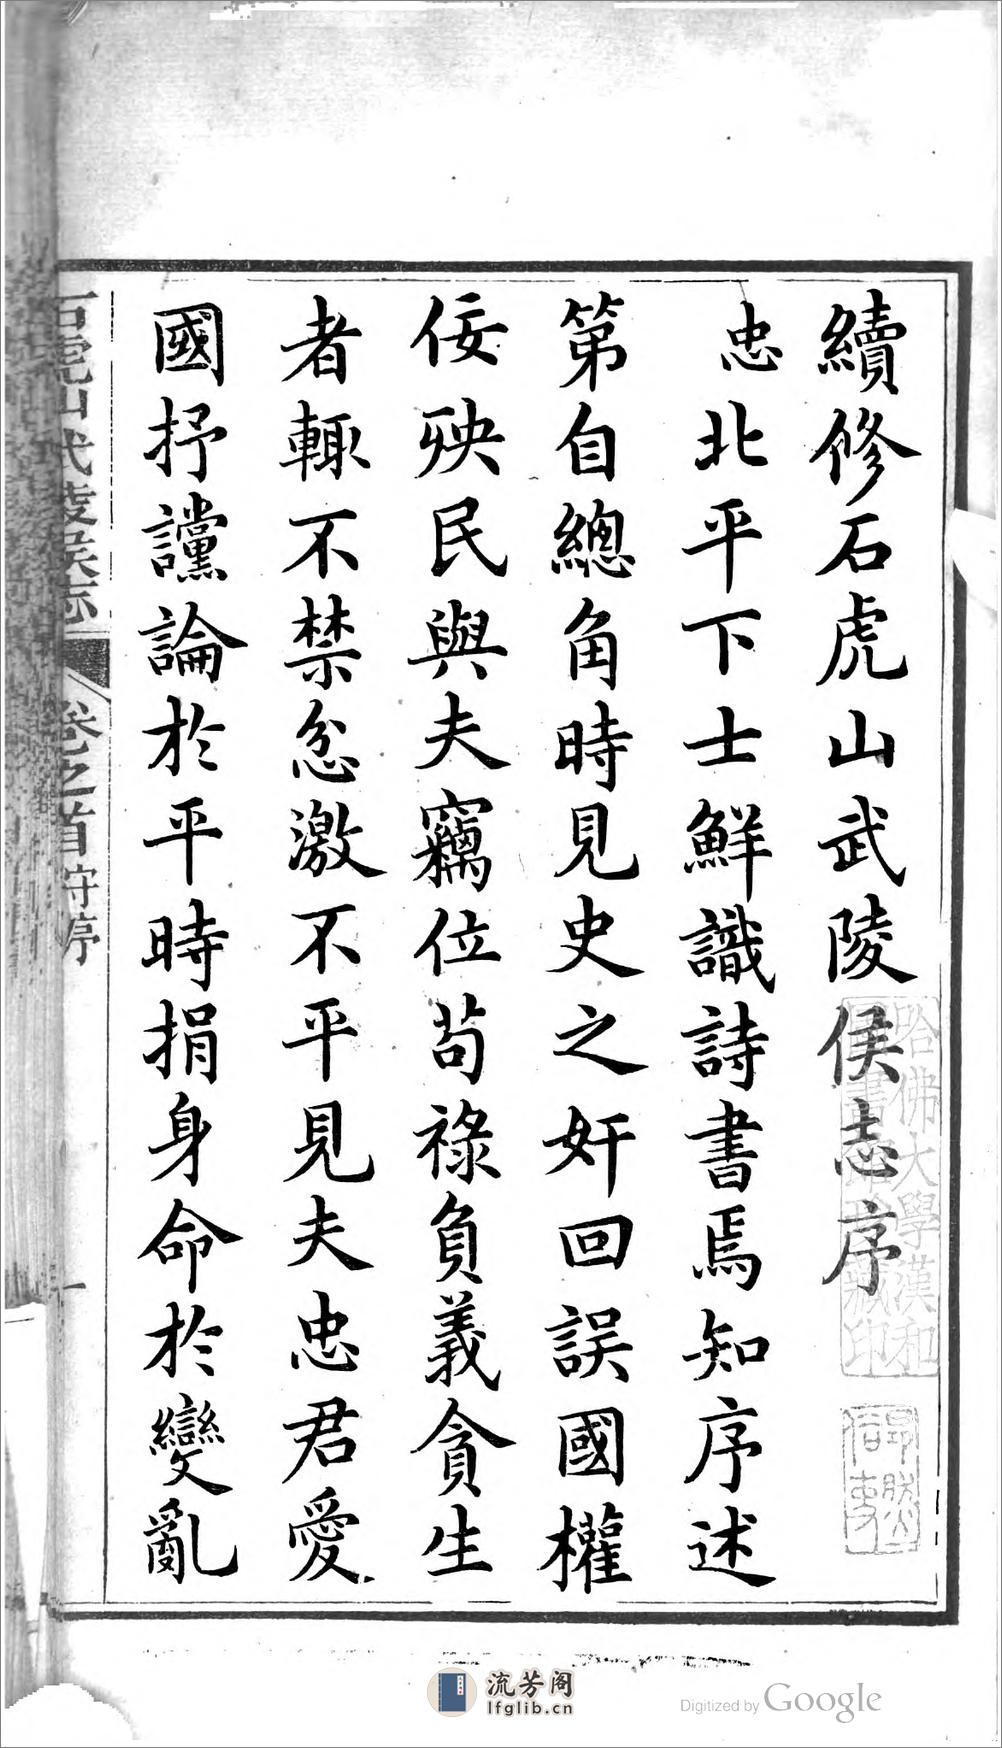 續修石虎山武陵侯志序
忠北平下士鮮識詩書焉知序述
第自總角時見史之奸回誤國權
佞殃民與夫竊位苟祿負義貪生
者輙不禁忿激不平見夫忠君愛
國抒讜論於平時捐身命於變亂
石虎山武陵侯志
卷之首
一
哈佛大學漢和
圖書館珍藏印
流芳阁
lfglib.cn
Digitized by Google